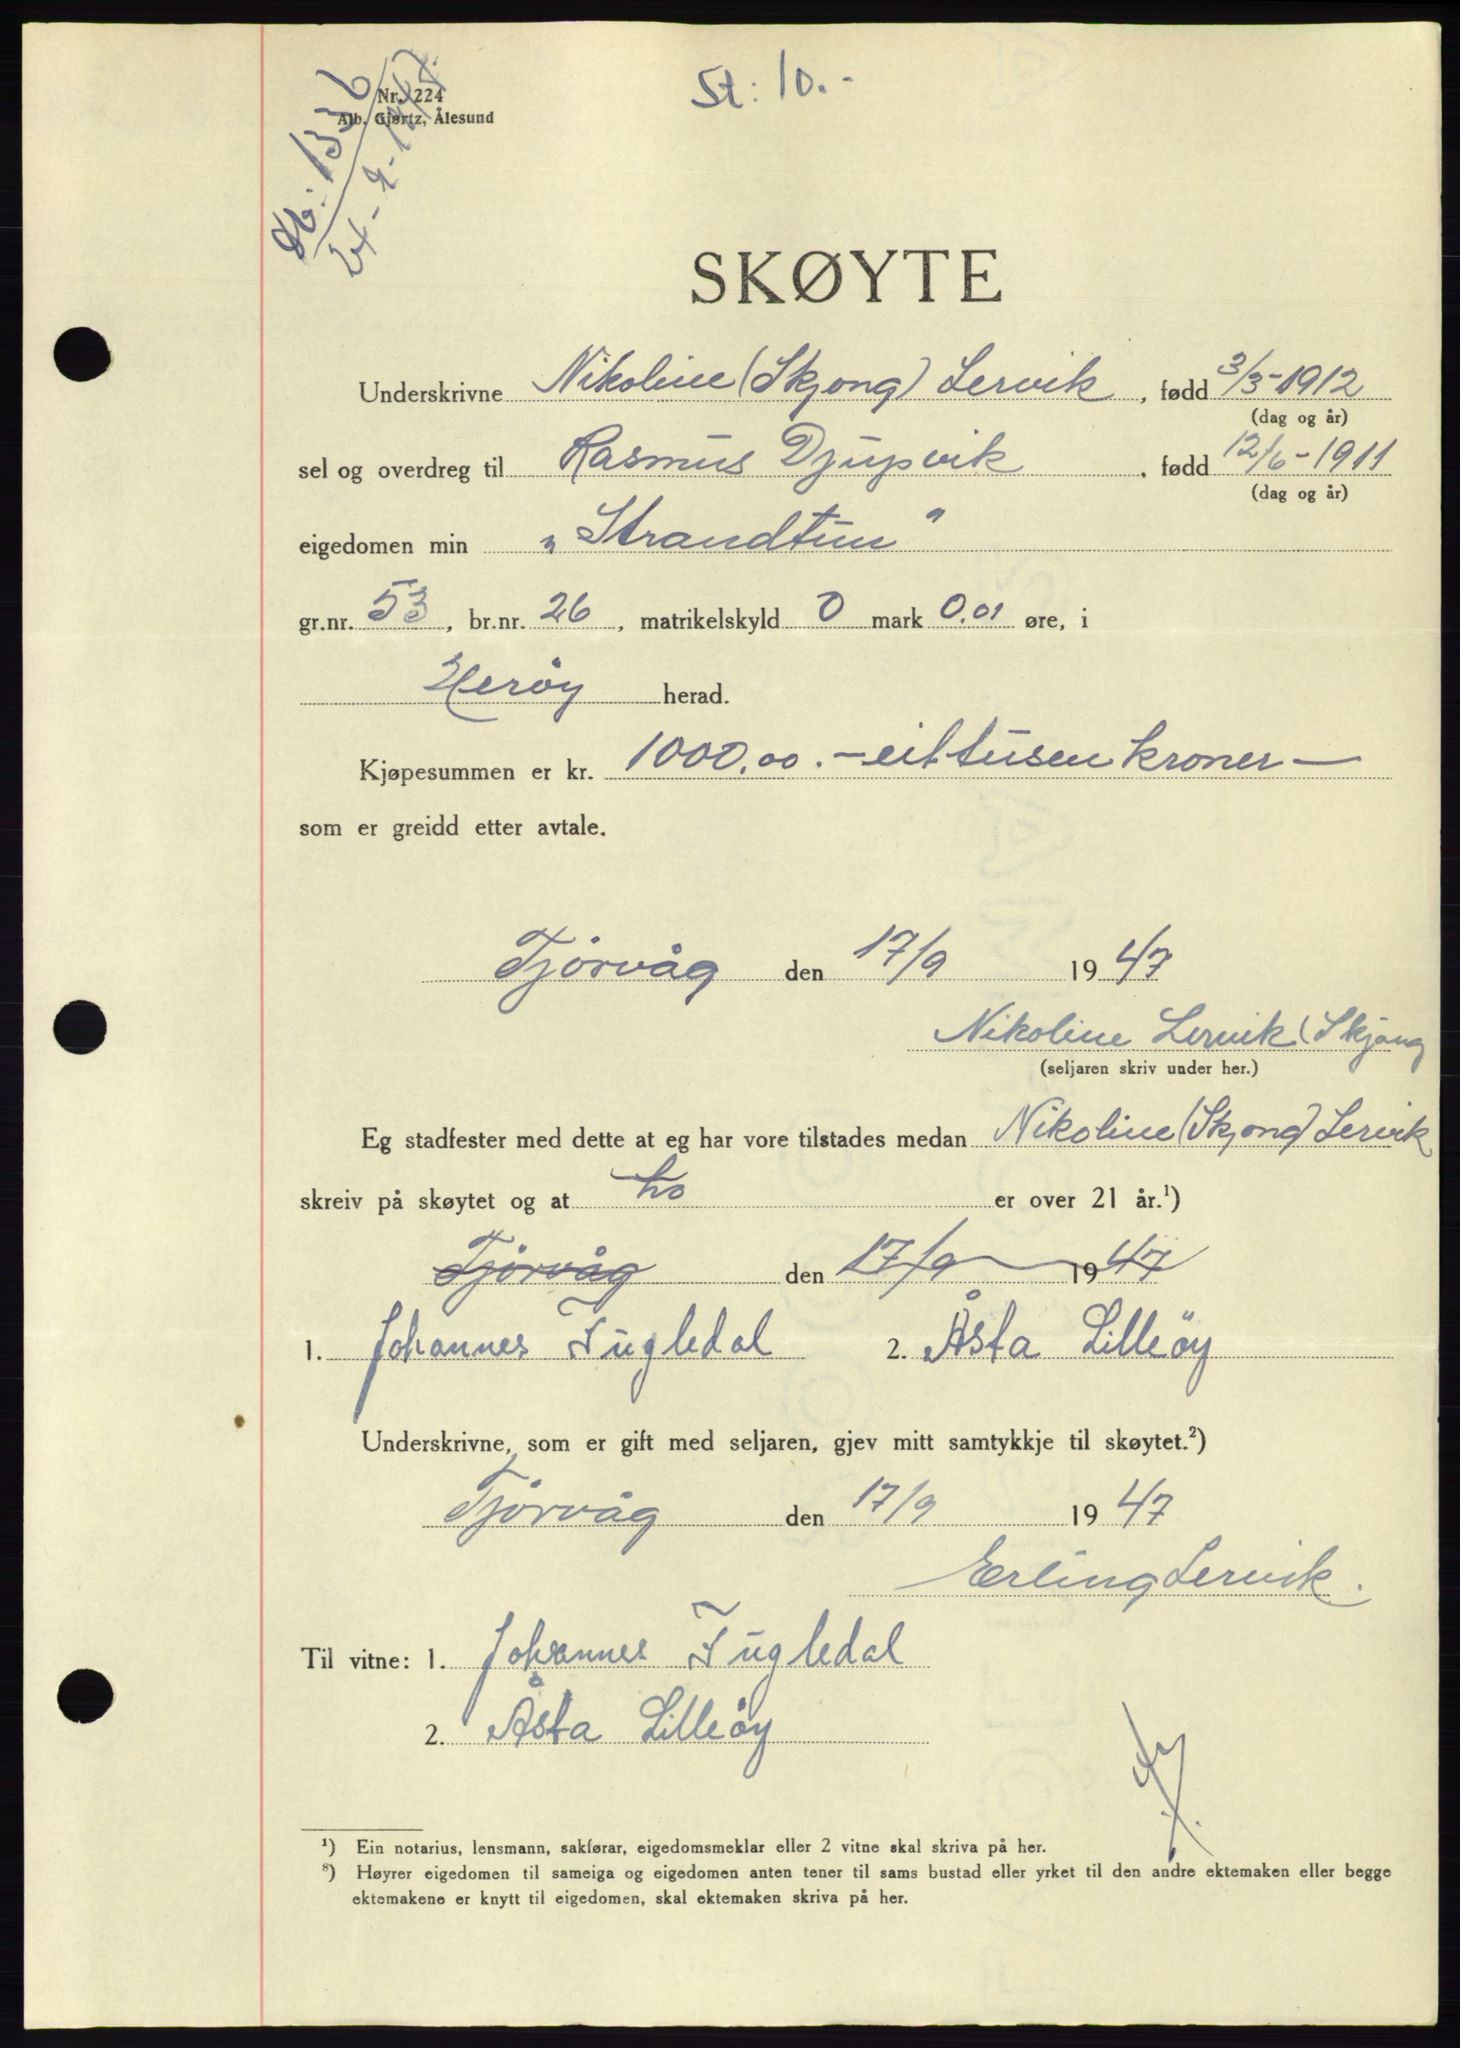 St: 10.-
Nr. 224
Alb. Gjørtz, Ålesund
1336
24-9-1947
SKØYTE
Underskrivne Nikoline (Skjong) Lervik, fødd 3/3-1912
(dag og år)
sel og overdreg til Rasmus Djupvik, fødd 12/6-1911
(dag og år)
eigedomen min „Strandtun"
gr.nr. 53, br.nr. 26, matrikelskyld 0 mark 0.01 øre, i
Herøy herad.
Kjøpesummen er kr. 1000.00.- eittusen kroner —
som er greidd etter avtale.
Tjörvåg den 17/9 1947
Nikoline Lervik (Skjong
(seljaren skriv under her.)
Eg stadfester med dette at eg har vore tilstades medan Nikoline (Skjong) Lervik
skreiv på skøytet og at ho er over 21 år.¹)
Tjörvåg den 17/9 1947
1. Johannes Fugledal 2. Åsta Lilleöy
Underskrivne, som er gift med seljaren, gjev mitt samtykkje til skøytet.²)
Tjörvåg den 17/9 1947
Erling Lervik.
Til vitne: 1. Johannes Fugledal
2. Åsta Lilleöy
¹) Ein notarius, lensmann, sakførar, eigedomsmeklar eller 2 vitne skal skriva på her.
⁸) Høyrer eigedomen til sameiga og eigedomen anten tener til sams bustad eller yrket til den andre ektemaken eller begge
ektemakene er knytt til eigedomen, skal ektemaken skriva på her.